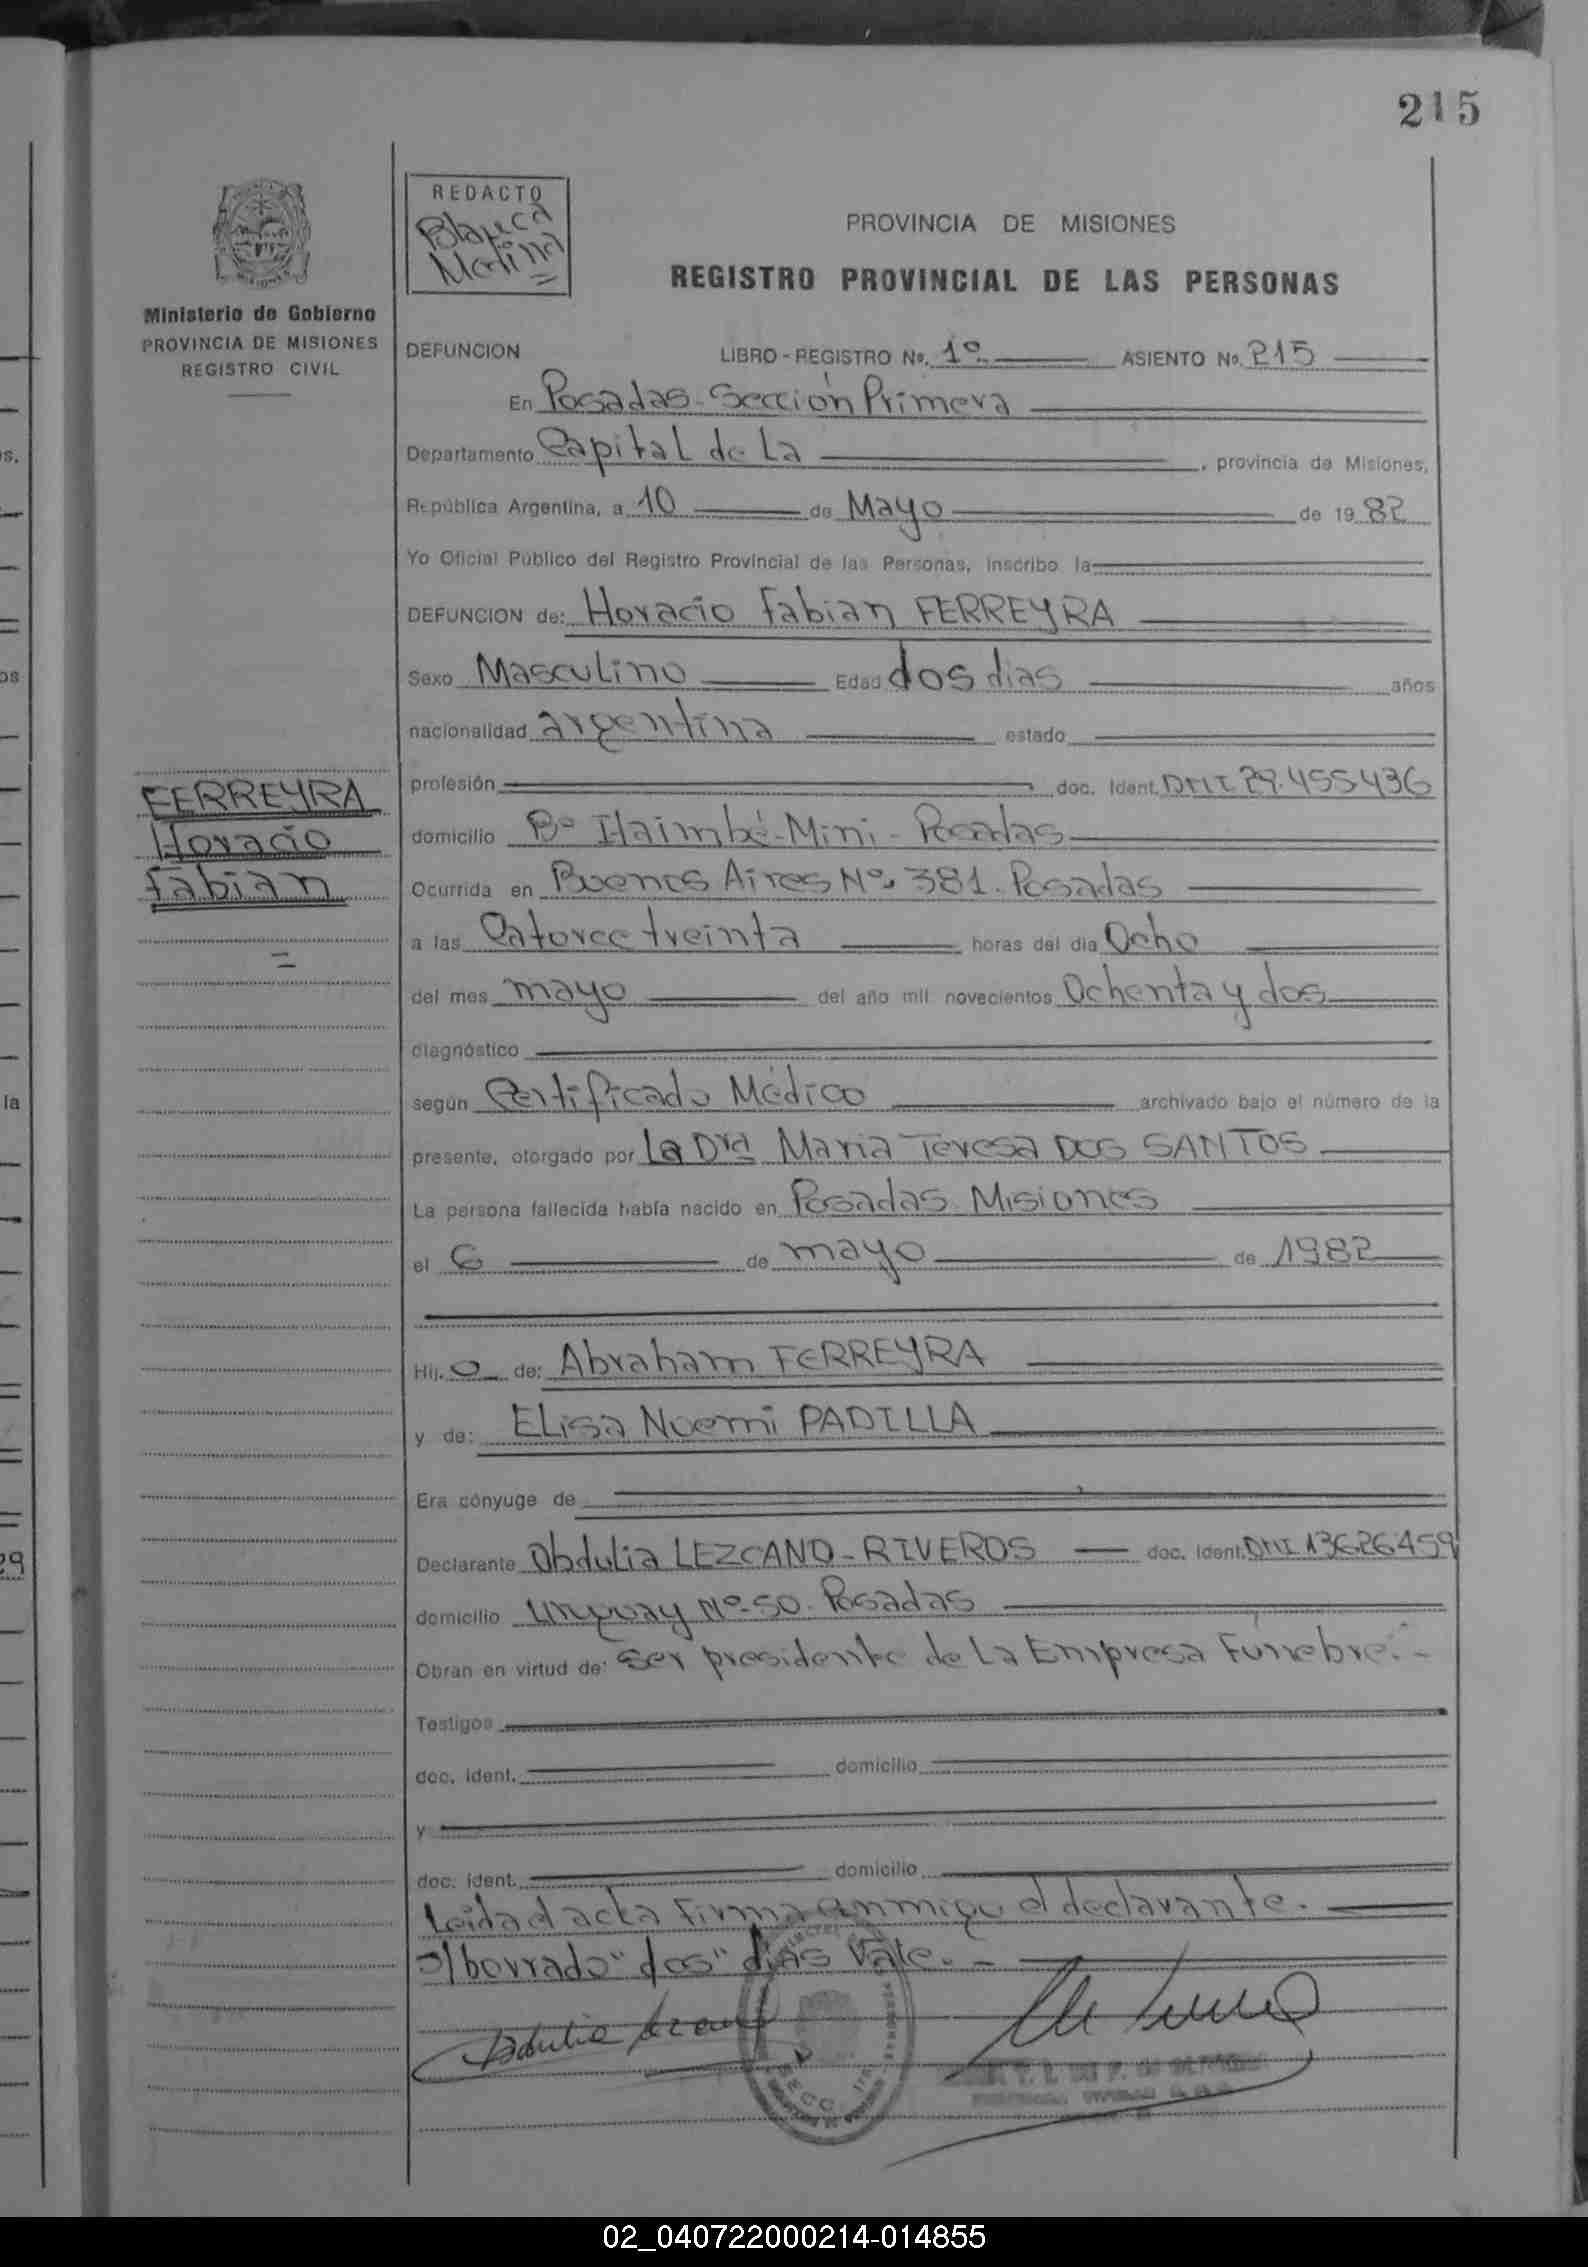 215
REDACTO
Blanca
Medina
Ministerio de Gobierno
PROVINCIA DE MISIONES
REGISTRO CIVIL
PROVINCIA DE MISIONES
REGISTRO PROVINCIAL DE LAS PERSONAS
DEFUNCION LIBRO - REGISTRO No. 1º ASIENTO No. 215
En Posadas - Sección Primera
Departamento Capital de La , provincia de Misiones,
República Argentina, a 10 de Mayo de 1982
Yo Oficial Público del Registro Provincial de las Personas, inscribo la
DEFUNCION de: Horacio Fabian FERREYRA
Sexo Masculino Edad dos dias años
nacionalidad argentina estado
profesión doc. Ident. DNI 29.455436
FERREYRA
Horacio
Fabian
domicilio Bº Itaimbé-Mini - Posadas
Ocurrida en Buenos Aires Nº 381. Posadas
a las Catorce treinta horas del día Ocho
del mes mayo del año mil novecientos Ochenta y dos
diagnóstico
según Certificado Médico archivado bajo el número de la
presente, otorgado por La Dra Maria Teresa DOS SANTOS
La persona fallecida había nacido en Posadas Misiones
el 6 de mayo de 1982
Hij. o de: Abraham FERREYRA
y de: Elisa Noemi PADILLA
Era cónyuge de
Declarante Obdulia LEZCANO - RIVEROS doc. Ident. DNI 13626459
domicilio Uruguay Nº 50. Posadas
Obran en virtud de: ser presidente de La Empresa Funebre.-
Testigos
doc. ident. domicilio
y
doc. ident. domicilio
Leida el acta Firma conmigo el declarante.
s/borrado "dos" dias Vale.-
SECC.
02_040722000214-014855